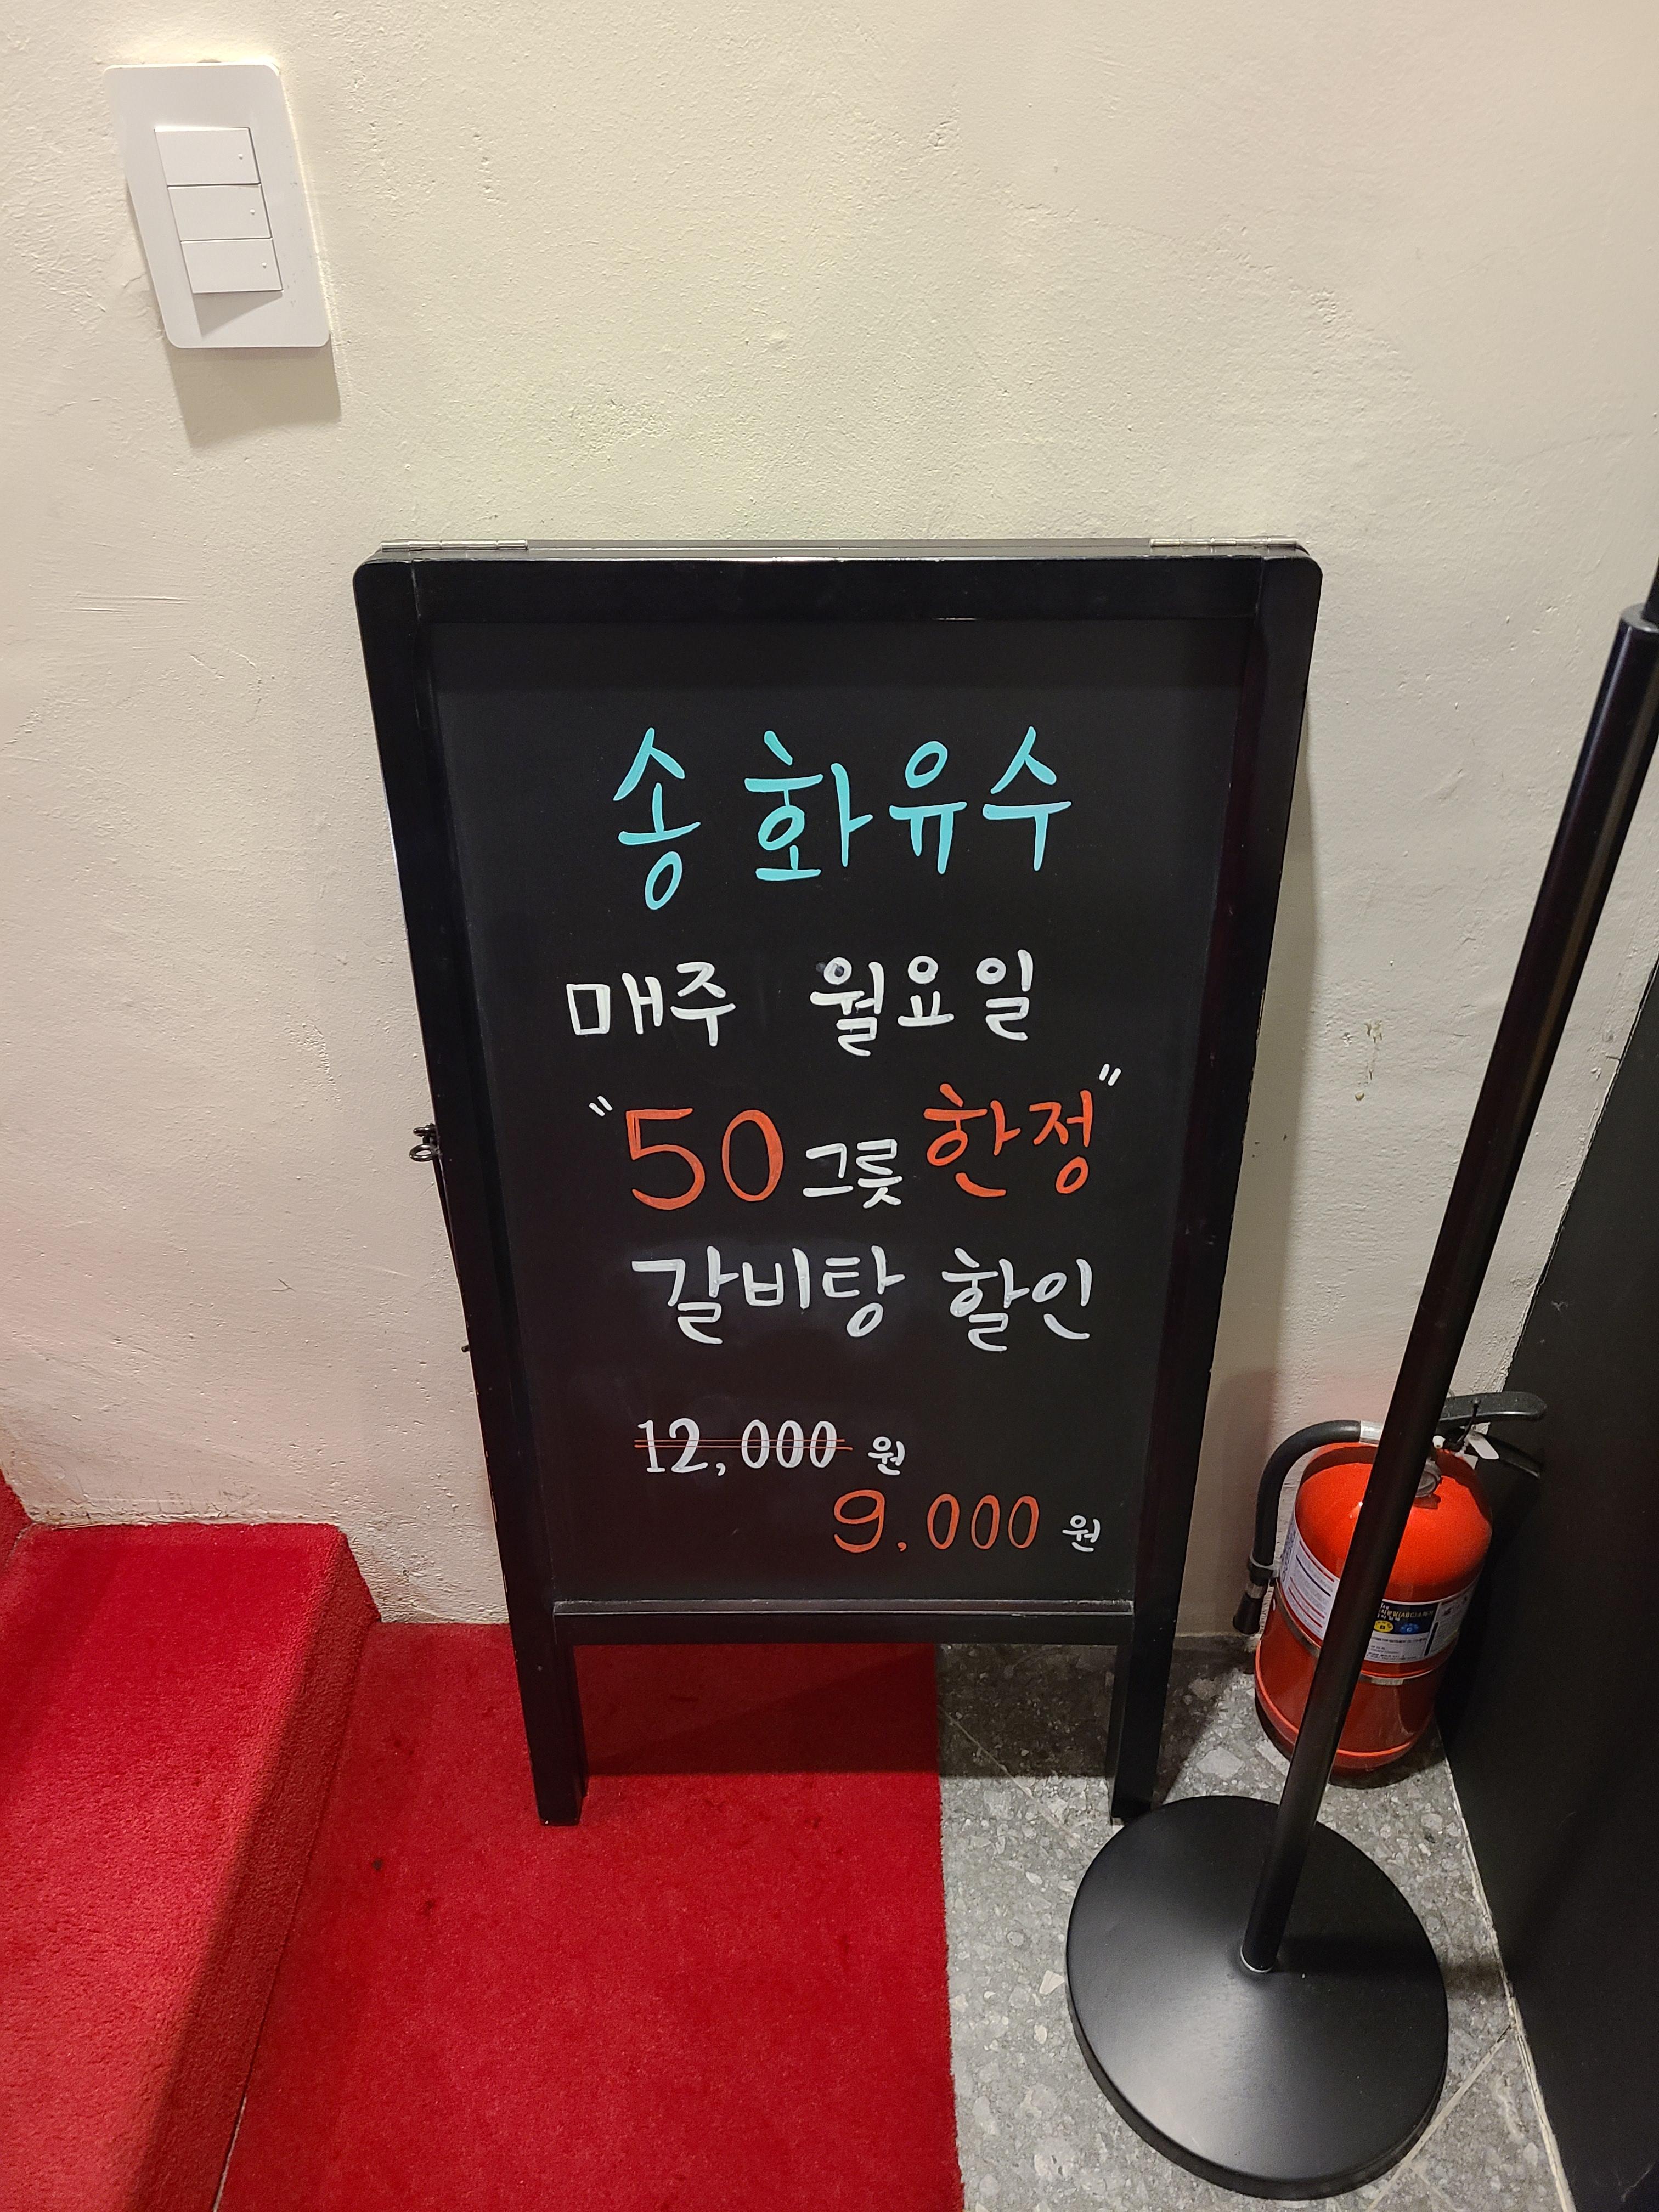 송화유수
매주 월요일
"50그릇 한정"
갈비탕 할인
12,000 원
9,000 원